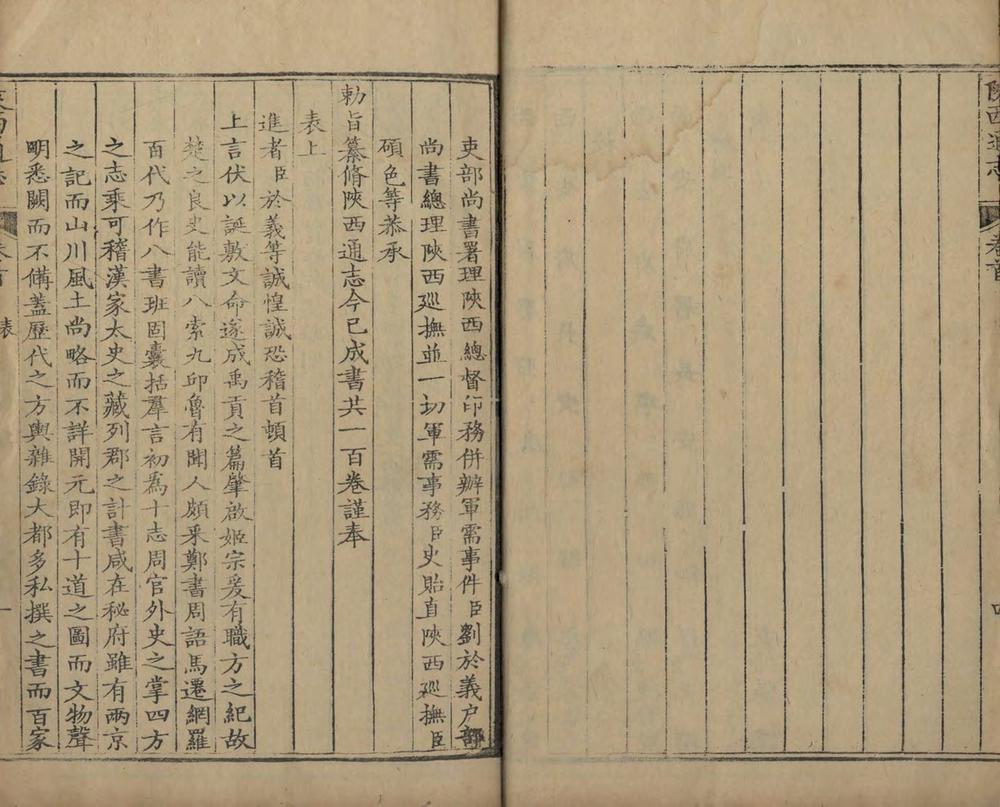 陝西通志
卷首
四
吏部尚書署理陝西總督印務併辦軍需事件臣劉於義户部
尚書總理陝西廵撫並一切軍需事務臣史貽直陝西廵撫臣
碩色等恭承
勅旨纂脩陝西通志今已成書共一百卷謹奉
表上
進者臣於義等誠惶誠恐稽首頓首
上言伏以誕敷文命遂成禹貢之篇肇啟姬宗爰有職方之紀故
楚之良史能讀八索九邱魯有聞人頗釆鄭書周語馬遷網羅
百代乃作八書班固囊括羣言初爲十志周官外史之掌四方
之志乘可稽漢家太史之藏列郡之計書咸在秘府雖有兩京
之記而山川風土尚略而不詳開元即有十道之圖而文物聲
明悉闕而不備蓋歷代之方輿雜錄大都多私撰之書而百家
表
一